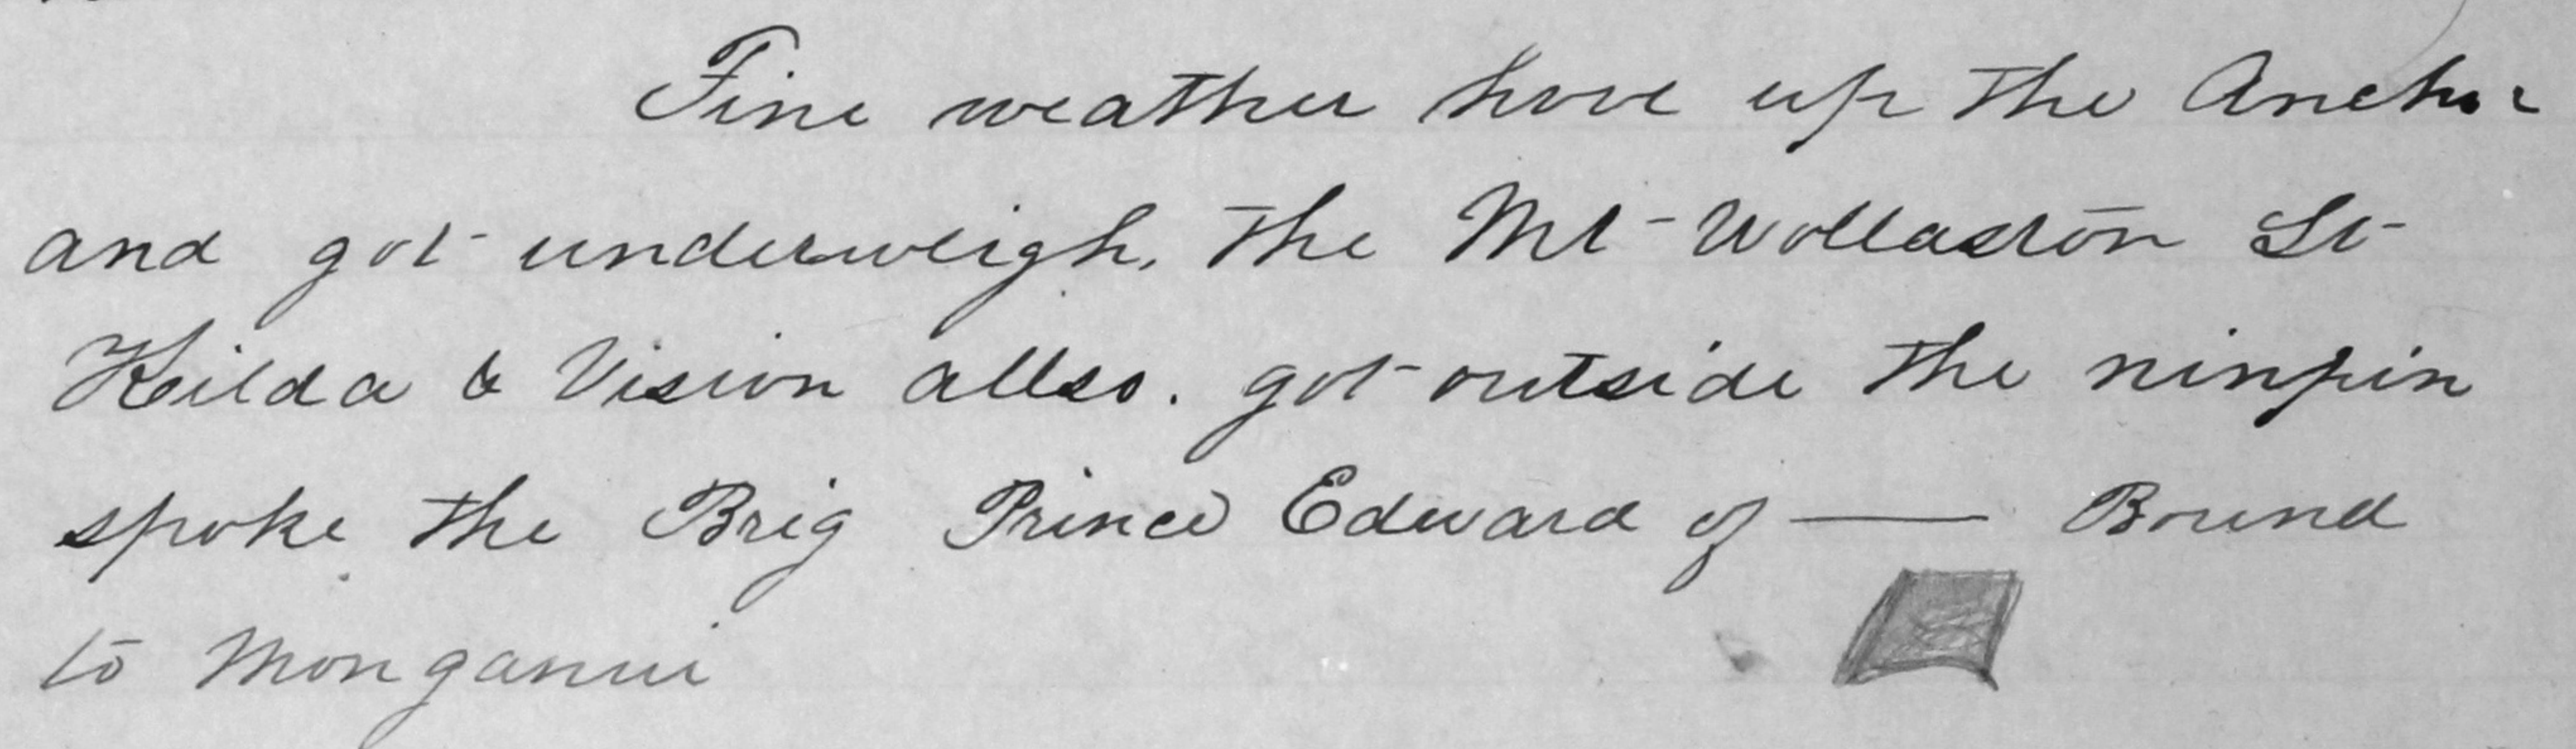 Fine weather hove up the Anchor
and got underweigh, the Mt Wollaston St
Kilda & Vision allso. got outside the ninpin
spoke the Brig Prince Edward of —— Bound
to Monganui